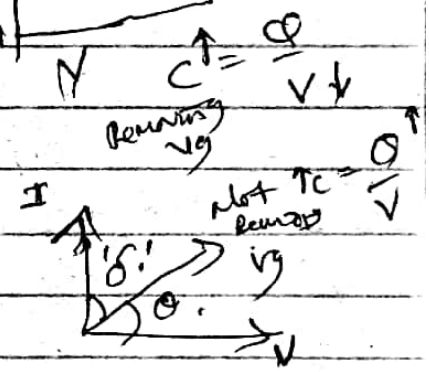 N
C↑ = Q / V↓
Removing
vg
Not
Removing
vg
↑C = Q↑ / V
I
'δ.'
θ.
V